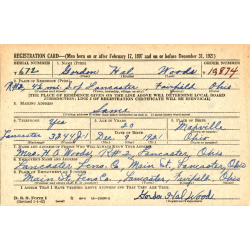 REGISTRATION CARD—(Men born on or after February 17, 1897 and on or before December 31, 1921)
SERIAL NUMBER 1. NAME (Print) ORDER NUMBER
672 Gordon Hal Woods 10,874
2. PLACE OF RESIDENCE (Print)
R#2 Lancaster Fairfield Ohio
[THE PLACE OF RESIDENCE GIVEN ON THE LINE ABOVE WILL DETERMINE LOCAL BOARD
JURISDICTION; LINE 2 OF REGISTRATION CERTIFICATE WILL BE IDENTICAL]
3. MAILING ADDRESS
Same
4. TELEPHONE 5. AGE IN YEARS 6. PLACE OF BIRTH
Yes 20 Maxville
DATE OF BIRTH
Lancaster 1921 Ohio
7. NAME AND ADDRESS OF PERSON WHO WILL ALWAYS KNOW YOUR ADDRESS
Mrs. H. B. Woods, R#2 Lancaster, Ohio
8. EMPLOYER'S NAME AND ADDRESS
Lancaster Lens Co. Main St. Lancaster Ohio
9. PLACE OF EMPLOYMENT OR BUSINESS
Main St. Lens Co. Lancaster, Fairfield, Ohio
I AFFIRM THAT I HAVE VERIFIED ABOVE ANSWERS AND THAT THEY ARE TRUE.
D. S. S. Form 1
Gordon Hal Woods